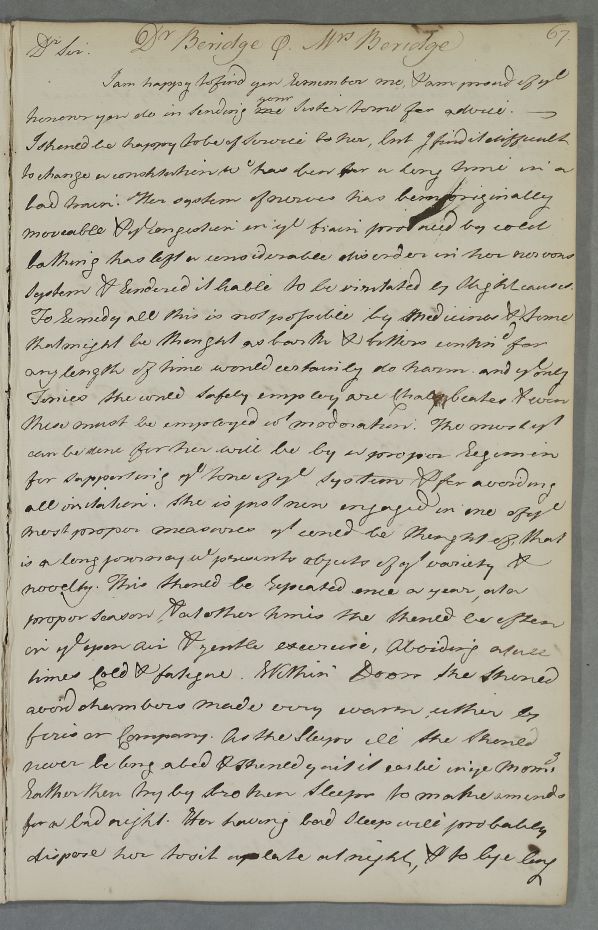 Dr Beridge Q. Mrs Beridge
67.
Dr Sir.
I am happy to find you Remember me, & am proud of ye
honour you do in sending your Sister to me for advice.
I shoud be happy to be of Service to her, but I find it difficult
to change a constitution wc has been for a long time in a
bad train. Her system of nerves has been originally
moveable & ye congestion in ye brain produced by cold
bathing has left a considerable disorder in her nervous
System & Rendered it liable to be irritated by slight causes.
To Remedy all this is not possible by Medicines & Some
that might be thought as bark & bitters contind for
any length of time would certainly do harm. and ye only
Tonics she could safely employ are Chalybeates & even
these must be employed wt moderation. The most yt
can be done for her will be by a proper Regimen
for supporting ye tone of ye System & for avoiding
all irritation. She is just now engaged in one of ye
most proper measures yt could be thought of, that
is a long journey wc presents objects of ye variety &
novelty. This shoud be Repeated once a year, at a
proper season & at other times she should be often
in ye open air & gentle exercise, Avoiding at all
times Cold & fatigue. Within Doors She Shoud
avoid chambers made very warm either by
fires or Company. As she Sleeps ill she should
never be long abed & shoud quit it earlie in ye Morng
Rather than try by broken Sleeps to make amends
for a bad night. Her having bad Sleep will probably
dispose her to sit up late at night, & to lye long